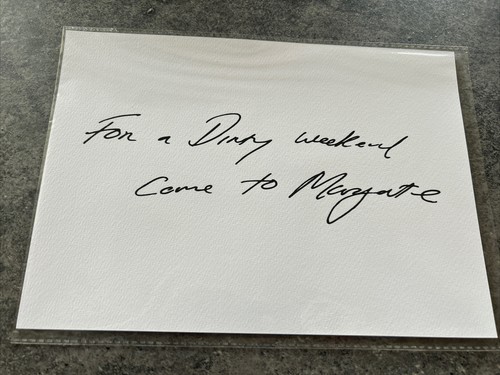 For a Dirty Weekend
Come to Margate